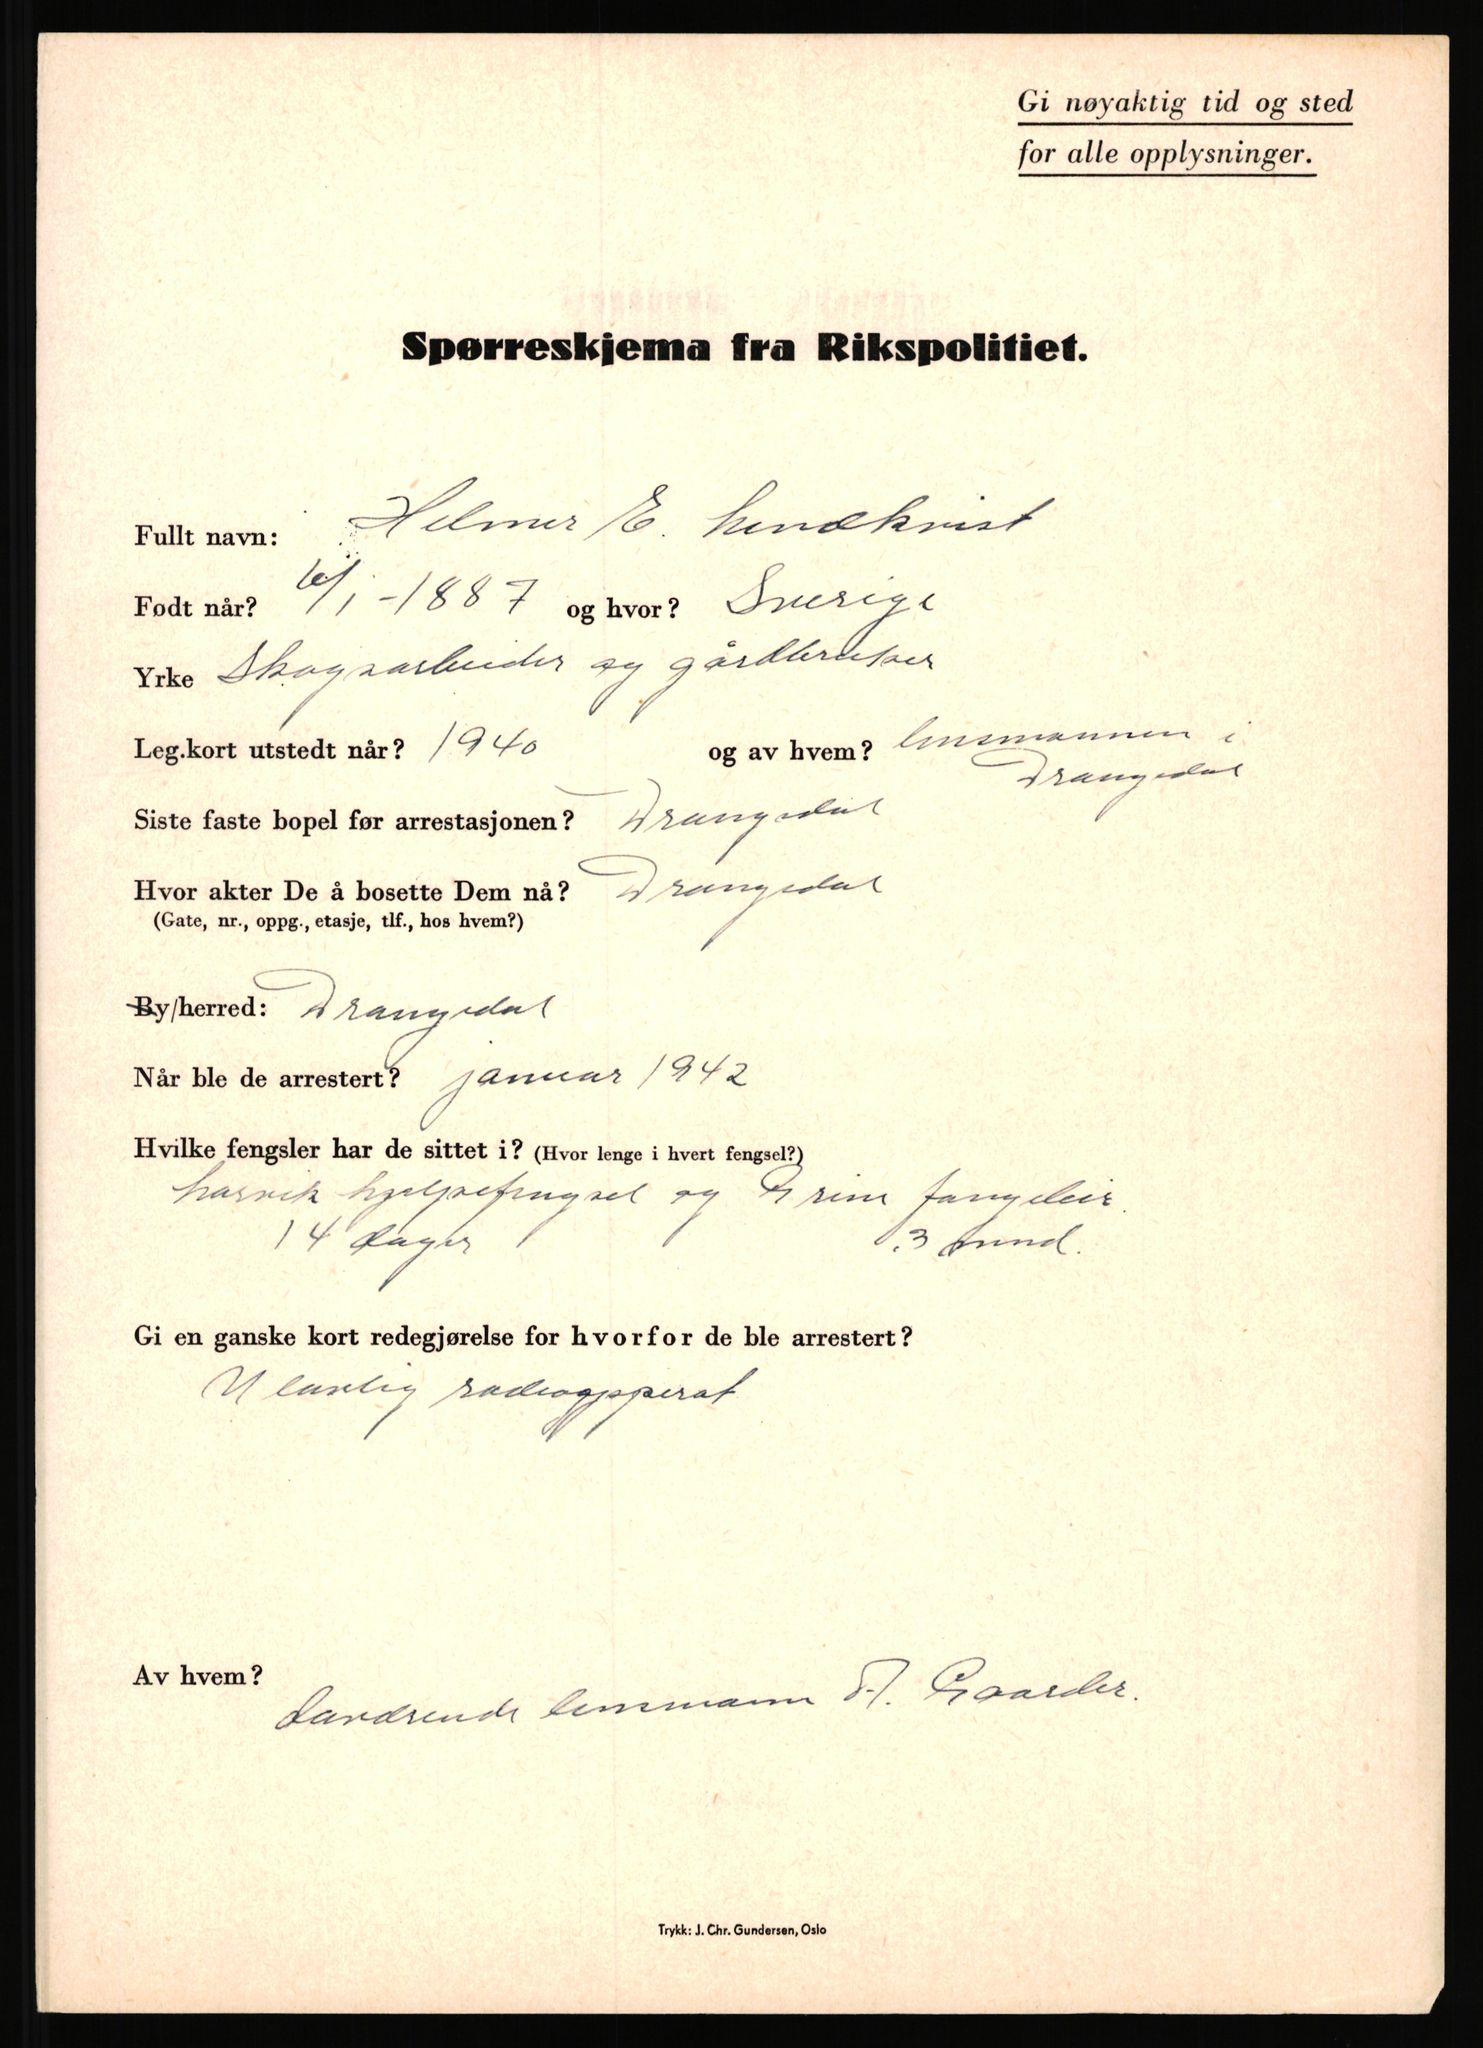 Gi nøyaktig tid og sted
for alle opplysninger.
Spørreskjema fra Rikspolitiet.
Fullt navn: Helmer E. Lindkvist
Født når? 6/1-1887 og hvor? Sverige
Yrke Skogsarbeider og gårdbruker
Leg.kort utstedt når? 1940 og av hvem? lensmannen i
Drangedal
Siste faste bopel før arrestasjonen? Drangedal
Hvor akter De å bosette Dem nå? Drangedal
(Gate, nr., oppg., etasje, tlf., hos hvem?)
By/herred: Drangedal
Når ble de arrestert? januar 1942
Hvilke fengsler har de sittet i? (Hvor lenge i hvert fengsel?)
Larvik hjelpefengsel og Grini fangeleir.
14 dager 3 mnd.
Gi en ganske kort redegjørelse for hvorfor de ble arrestert?
Ulovlig radioapperat
Av hvem?
lensmann A. Gaarder.
Trykk: J. Chr. Gundersen, Oslo